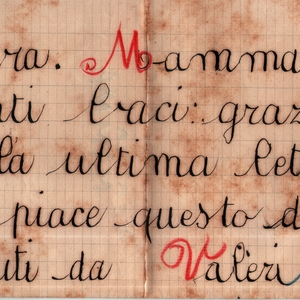 ra. Mamma
nti baci: graz
la ultima let
piace questo d
uti da Valeri